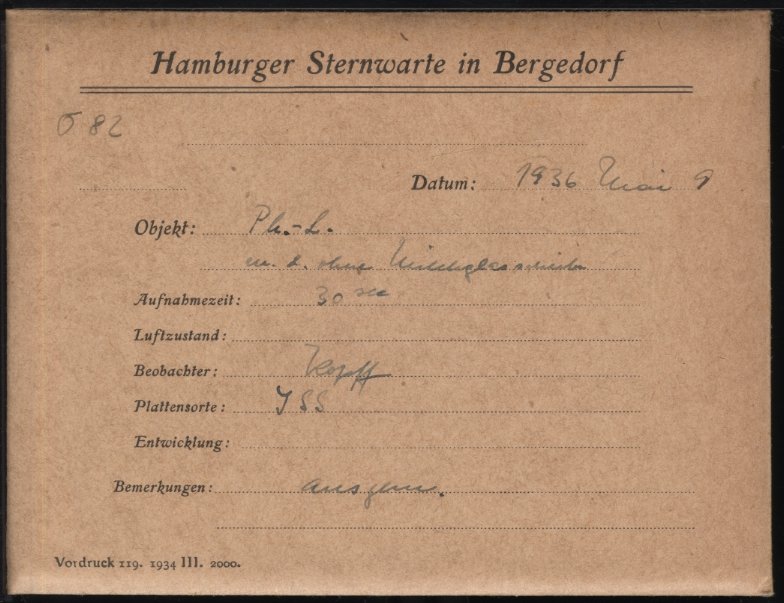 Hamburger Sternwarte in Bergedorf
82
Datum: 1936 Mai 9
Objekt: Ph.-L.
m. d. ohne Milchglasscheibe
Aufnahmezeit: 30 sec
Luftzustand:
Beobachter: Kopff
Plattensorte: ISS
Entwicklung:
Bemerkungen: ausgem.
Vordruck 119. 1934 III. 2000.